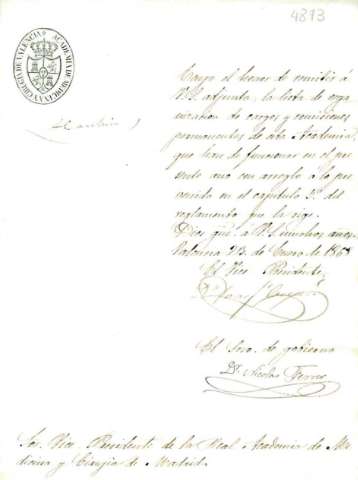 4873
ACADEMIA DE MEDICINA Y CIRUGIA DE VALENCIA
Tengo el honor de remitir á
V.S. adjunta, la lista de orga
nizacion de cargos y comisiones
permanentes de esta Academia,
que han de funcionar en el pre
sente año con arreglo á lo pre
venido en el capitulo 5º del
reglamento que la rige.
Dios gué. á V.S. muchos años.
Valencia 23 de Enero de 1868
El Vice Presidente,
El Srio. de gobierno
Dr. Nicolás Ferrer
Sor. Vice Presidente de la Real Academia de Me
dicina y Cirugia de Madrid.